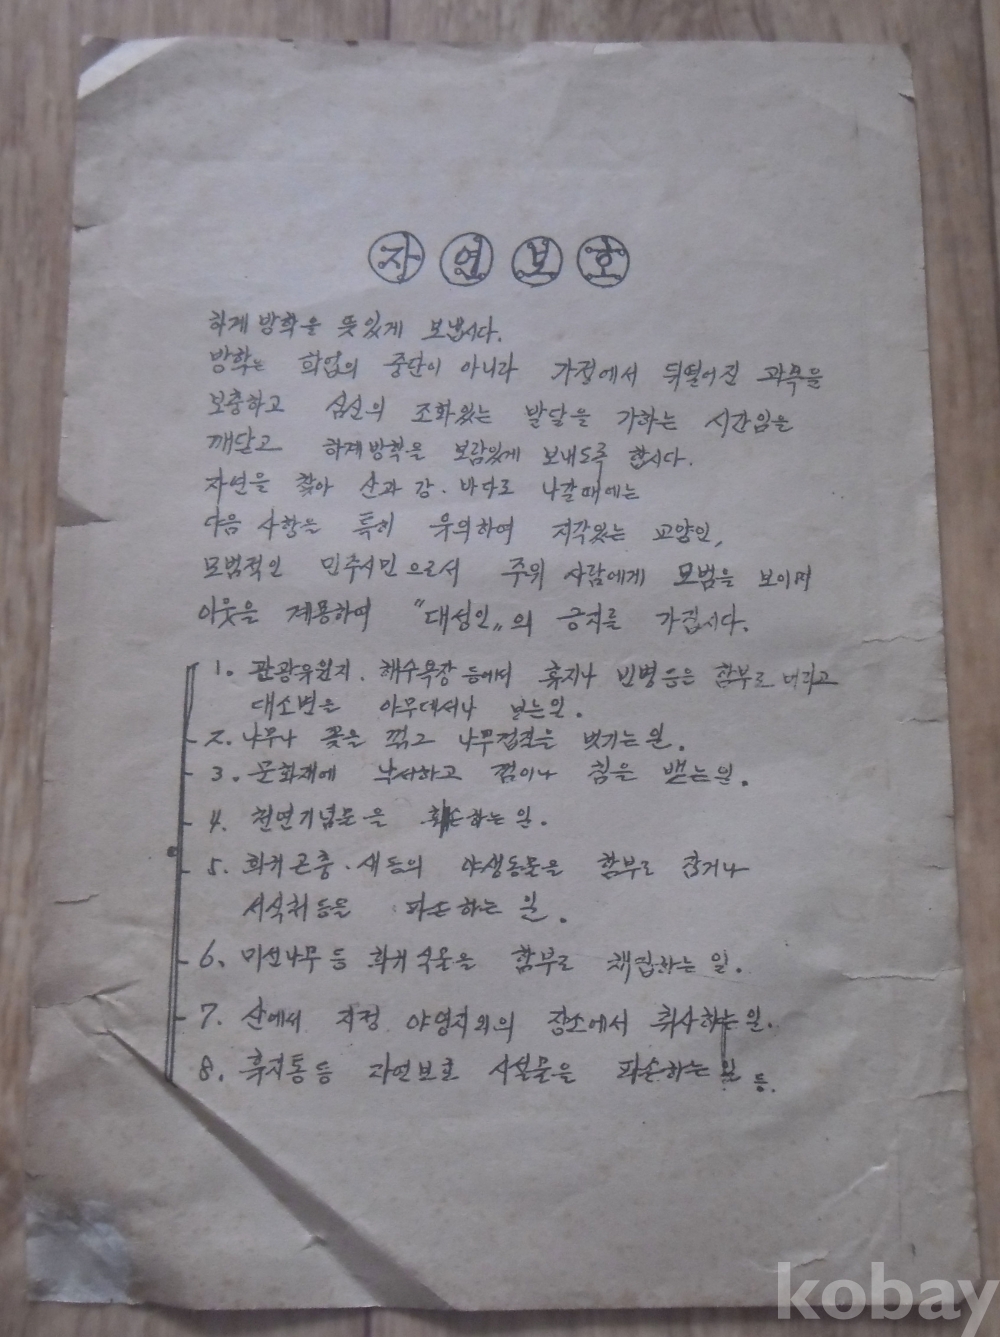 자연보호
하계 방학을 뜻있게 보냅시다.
방학는 학업의 중단이 아니라 가정에서 뒤떨어진 과목을
보충하고 심신의 조화있는 발달을 가하는 시간임을
깨닫고 하계방학을 보람있게 보내도록 합시다.
자연을 찾아 산과 강·바다로 나갈때에는
다음 사항을 특히 유의하여 지각있는 교양인,
모범적인 민주시민으로서 주위 사람에게 모범을 보이며
이웃을 계몽하여 "대성인"의 긍지를 가집시다.
1. 관광유원지. 해수욕장 등에서 휴지나 빈병등은 함부로 버리고
대소변을 아무데서나 보는일.
2. 나무나 꽃을 꺾고 나무껍질을 벗기는 일.
3. 문화재에 낙서하고 껌이나 침을 뱉는일.
4. 천연기념물을 훼손하는 일.
5. 희귀곤충·새등의 야생동물을 함부로 잡거나
서식처등을 파손하는 일.
6. 미선나무등 희귀식물을 함부로 채집하는 일.
7. 산에서 지정 야영지외의 장소에서 취사하는일.
8. 휴지통등 자연보호 시설물을 파손하는 일 등.
kobay